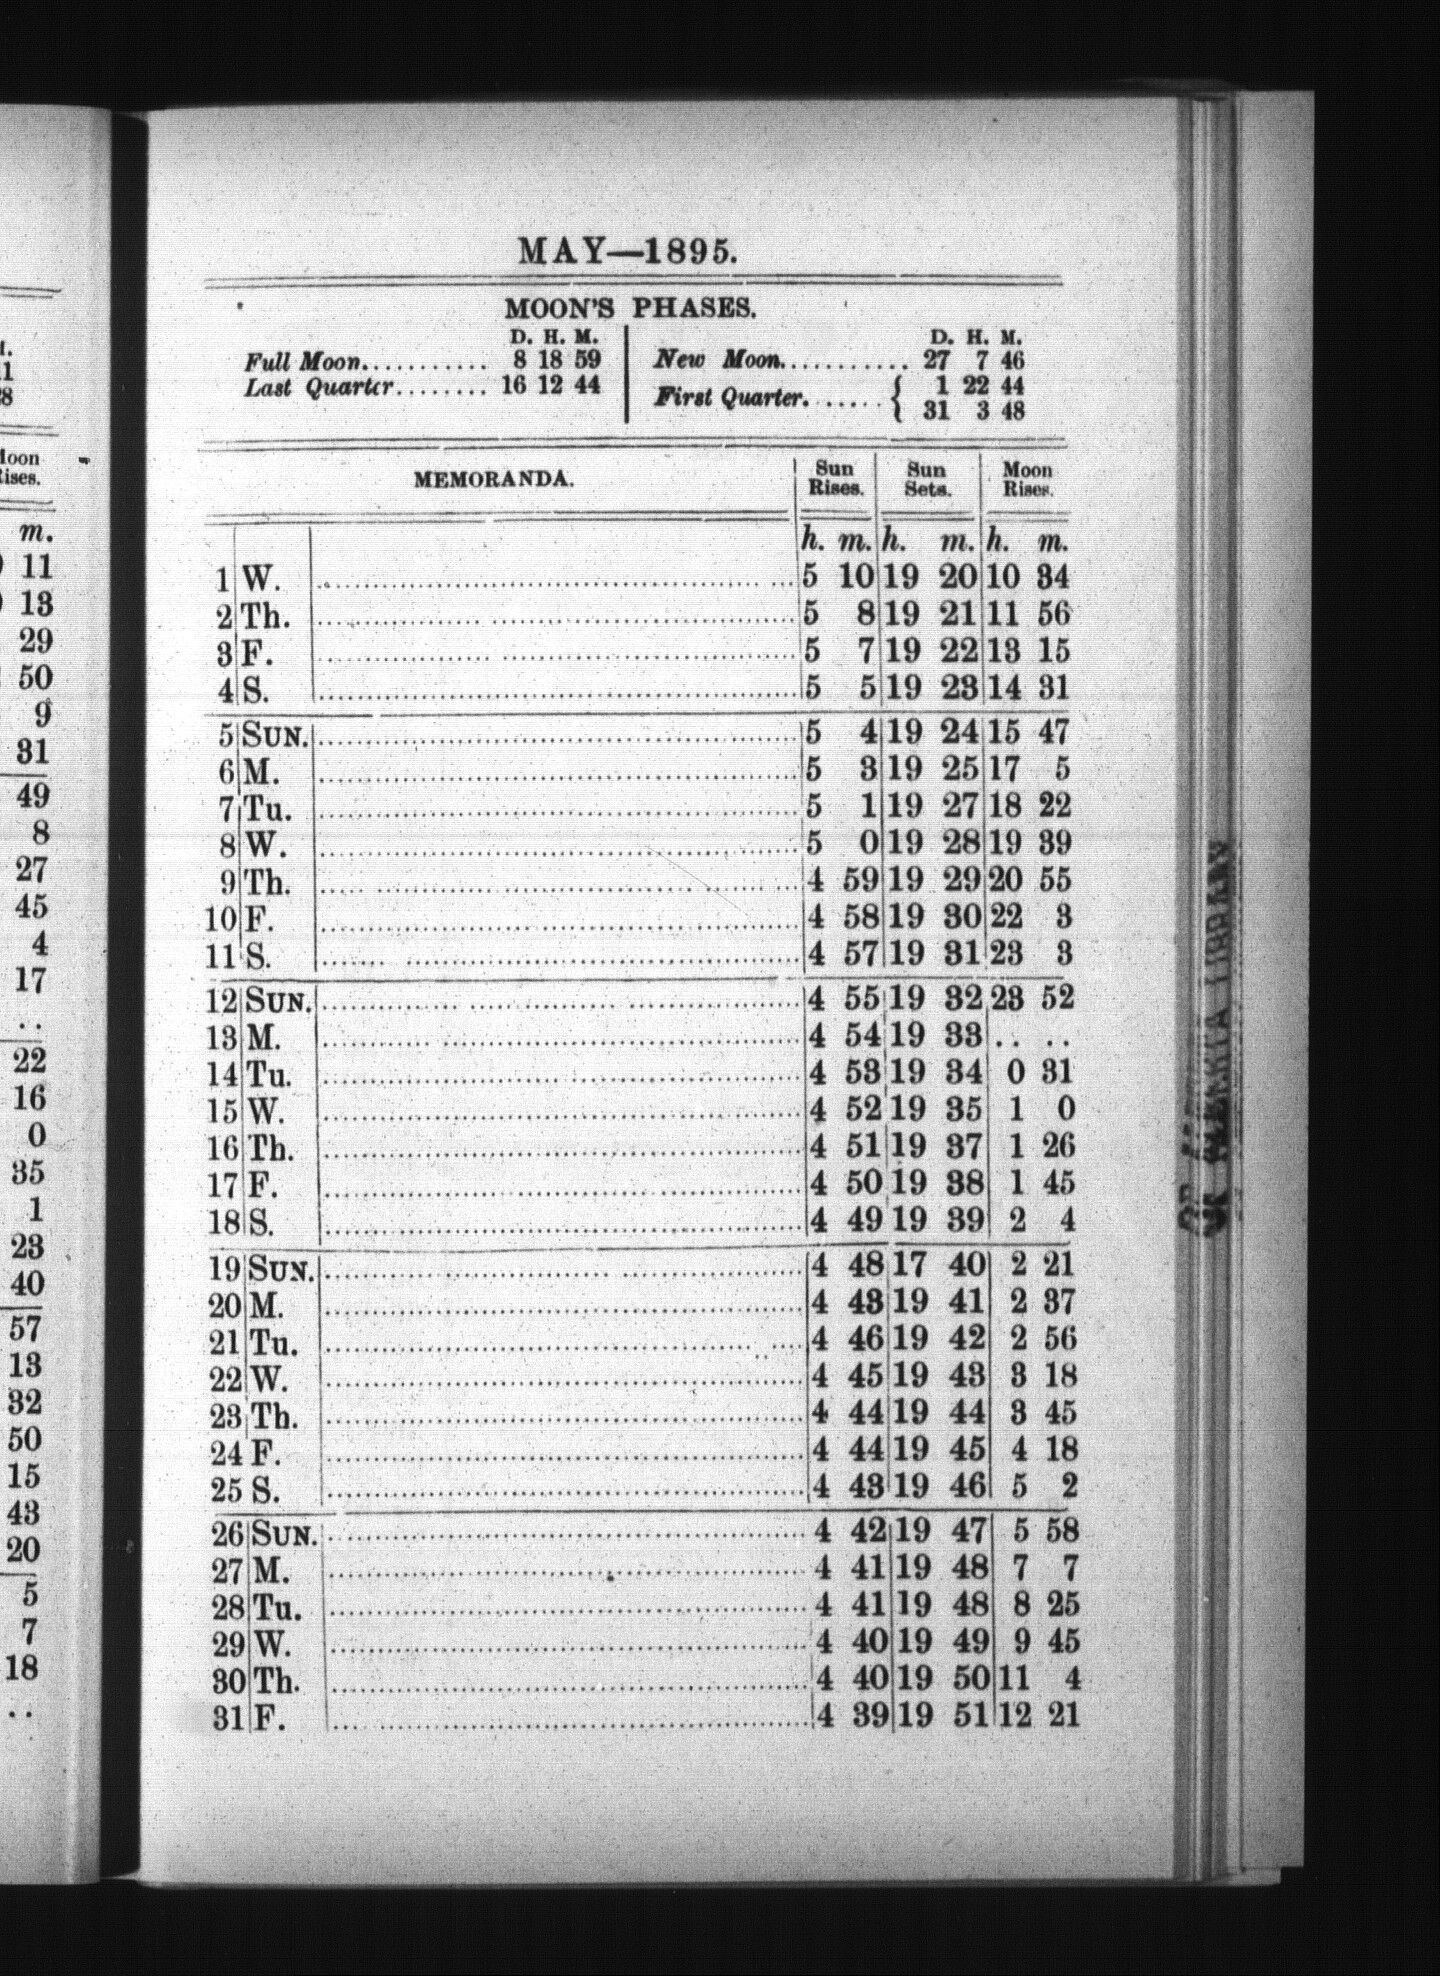 M.
11
28
Moon
Rises.
m.
11
13
29
50
9
31
49
8
27
45
4
17
. .
22
16
0
35
1
23
40
57
13
32
50
15
43
20
5
7
18
. .
MAY—1895.
MOON'S PHASES.
D. H. M.
Full Moon........... 8 18 59
Last Quarter........ 16 12 44
D. H. M.
New Moon........... 27 7 46
First Quarter....... { 1 22 44
31 3 48
MEMORANDA. Sun Rises. Sun Sets. Moon Rises.
h. m. h. m. h. m.
1 W. 5 10 19 20 10 34
2 Th. 5 8 19 21 11 56
3 F. 5 7 19 22 13 15
4 S. 5 5 19 23 14 31
5 SUN. 5 4 19 24 15 47
6 M. 5 3 19 25 17 5
7 Tu. 5 1 19 27 18 22
8 W. 5 0 19 28 19 39
9 Th. 4 59 19 29 20 55
10 F. 4 58 19 30 22 3
11 S. 4 57 19 31 23 3
12 SUN. 4 55 19 32 23 52
13 M. 4 54 19 33 . . . .
14 Tu. 4 53 19 34 0 31
15 W. 4 52 19 35 1 0
16 Th. 4 51 19 37 1 26
17 F. 4 50 19 38 1 45
18 S. 4 49 19 39 2 4
19 SUN. 4 48 17 40 2 21
20 M. 4 43 19 41 2 37
21 Tu. 4 46 19 42 2 56
22 W. 4 45 19 43 3 18
23 Th. 4 44 19 44 3 45
24 F. 4 44 19 45 4 18
25 S. 4 43 19 46 5 2
26 SUN. 4 42 19 47 5 58
27 M. 4 41 19 48 7 7
28 Tu. 4 41 19 48 8 25
29 W. 4 40 19 49 9 45
30 Th. 4 40 19 50 11 4
31 F. 4 39 19 51 12 21